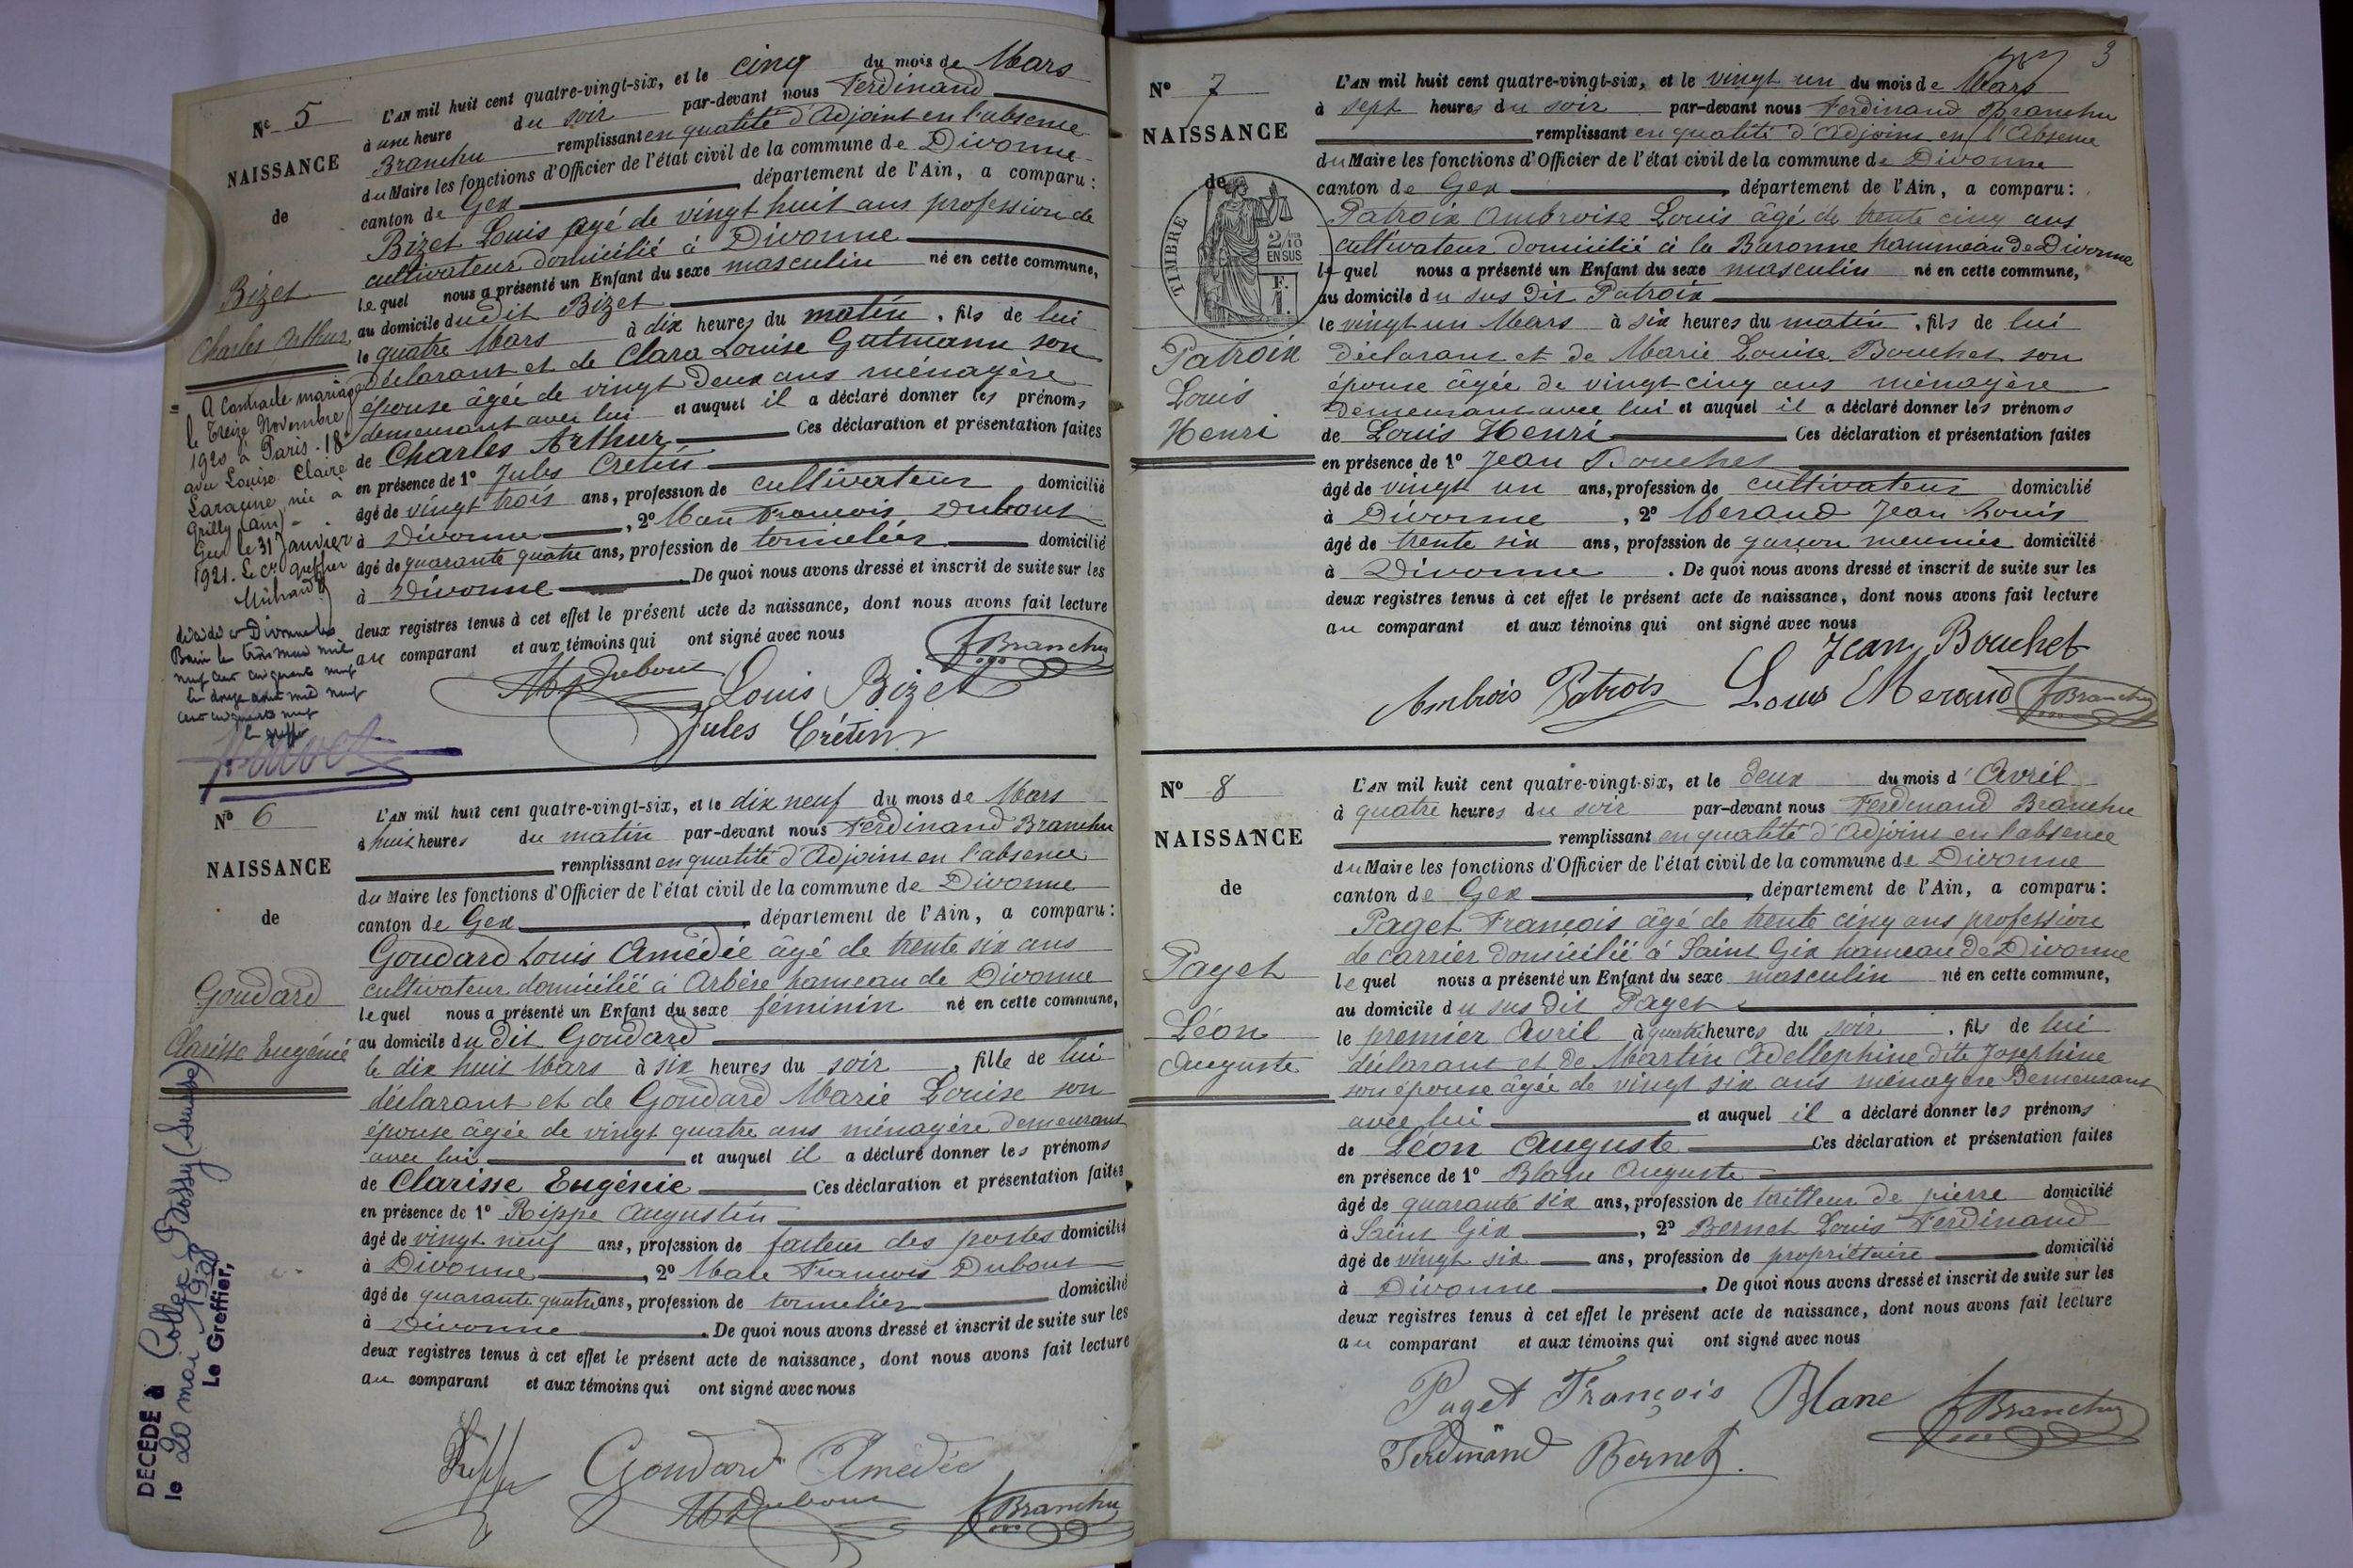 Nº 5
NAISSANCE
de
Bizet
Charles Arthur
L'AN mil huit cent quatre-vingt-six, et le cinq du mois de Mars
à une heure du soir par-devant nous Ferdinand
Branchu remplissant en qualité d'Adjoint en l'absence
du Maire les fonctions d'Officier de l'état civil de la commune de Divonne
canton de Gex département de l'Ain, a comparu :
Bizet Louis agé de vingt huit ans profession de
cultivateur domicilié à Divonne
lequel nous a présenté un Enfant du sexe masculin né en cette commune,
au domicile dudit Bizet
le quatre Mars à dix heures du matin, fils de lui
déclarant et de Clara Louise Gutmann son
épouse âgée de vingt deux ans ménagère
demeurant avec lui et auquel il a déclaré donner les prénoms
de Charles Arthur Ces déclaration et présentation faites
en présence de 1º Jules Cretin
âgé de vingt trois ans, profession de cultivateur domicilié
à Divonne, 2º Marc François Dubout
âgé de quarante quatre ans, profession de tonnelier domicilié
à Divonne. De quoi nous avons dressé et inscrit de suite sur les
deux registres tenus à cet effet le présent acte de naissance, dont nous avons fait lecture
au comparant et aux témoins qui ont signé avec nous
MF Dubout Louis Bizet FBranchu
Jules Crétin
A contracté mariage
le treize Novembre
1920 à Paris. 18e
avec Louise Claire
née à
Grilly (Ain)
Gex le 31 Janvier
1921. Le Cis greffier
décédé à Divonne les
Bains le trois mars mil
neuf cent cinquante neuf
le douze août mil neuf
cent cinquante neuf
le greffier
Nº 6
NAISSANCE
de
Goudard
Clarisse Eugénie
L'AN mil huit cent quatre-vingt-six, et le dix neuf du mois de Mars
à huit heures du matin par-devant nous Ferdinand Branchu
remplissant en qualité d'Adjoint en l'absence
du Maire les fonctions d'Officier de l'état civil de la commune de Divonne
canton de Gex, département de l'Ain, a comparu :
Goudard Louis Amédée âgé de trente six ans
cultivateur domicilié à Arbère hameau de Divonne
lequel nous a présenté un Enfant du sexe féminin né en cette commune,
au domicile du dit Goudard
le dix huit Mars à six heures du soir, fille de lui
déclarant et de Goudard Marie Louise son
épouse âgée de vingt quatre ans ménagère demeurant
avec lui et auquel il a déclaré donner les prénoms
de Clarisse Eugénie Ces déclaration et présentation faites
en présence de 1º Rippe Augustin
âgé de vingt neuf ans, profession de facteur des postes domicilié
à Divonne, 2º Marc François Dubout
âgé de quarante quatre ans, profession de tonnelier domicilié
à Divonne. De quoi nous avons dressé et inscrit de suite sur les
deux registres tenus à cet effet le présent acte de naissance, dont nous avons fait lecture
au comparant et aux témoins qui ont signé avec nous
Goudard Amédée
MF Dubout FBranchu
DÉCÉDÉ à Collex Bossy (Suisse)
le 20 mai
Le Greffier,
3
Nº 7
NAISSANCE
de
TIMBRE
2/10
EN SUS
F.
1.
Patroix
Louis
Henri
L'AN mil huit cent quatre-vingt-six, et le vingt un du mois de Mars
à sept heures du soir par-devant nous Ferdinand Branchu
remplissant en qualité d'Adjoint en l'Absence
du Maire les fonctions d'Officier de l'état civil de la commune de Divonne
canton de Gex, département de l'Ain, a comparu :
Patroix Ambroise Louis âgé de trente cinq ans
cultivateur domicilié à la Baronne hammeau de Divonne
lequel nous a présenté un Enfant du sexe masculin né en cette commune,
au domicile du sus dit Patroix
le vingt un Mars à six heures du matin, fils de lui
déclarant et de Marie Louise Bouchet son
épouse âgée de vingt cinq ans ménagère
demeurant avec lui et auquel il a déclaré donner les prénoms
de Louis Henri Ces déclaration et présentation faites
en présence de 1º Jean Bouchet
âgé de vingt un ans, profession de cultivateur domicilié
à Divonne, 2º Meraud Jean Louis
âgé de trente six ans, profession de garçon meunier domicilié
à Divonne. De quoi nous avons dressé et inscrit de suite sur les
deux registres tenus à cet effet le présent acte de naissance, dont nous avons fait lecture
au comparant et aux témoins qui ont signé avec nous
Jean Bouchet
Ambrois Patroix Louis Meraud FBranchu
Nº 8
NAISSANCE
de
Paget
Léon
Auguste
L'AN mil huit cent quatre-vingt-six, et le deux du mois d'Avril
à quatre heures du soir par-devant nous Ferdinand Branchu
remplissant en qualité d'Adjoint en l'absence
du Maire les fonctions d'Officier de l'état civil de la commune de Divonne
canton de Gex, département de l'Ain, a comparu :
Paget François âgé de trente cinq ans profession
de carrier domicilié à Saint Gix hameau de Divonne
lequel nous a présenté un Enfant du sexe masculin né en cette commune,
au domicile du sus dit Paget
le premier Avril à quatre heures du soir, fils de lui
déclarant et de Martin Adellephine dite Josephine
son épouse âgée de vingt six ans ménagère Demeurant
avec lui et auquel il a déclaré donner les prénoms
de Léon Auguste Ces déclaration et présentation faites
en présence de 1º Blanc Auguste
âgé de quarante six ans, profession de tailleur de pierre domicilié
à Saint Gix, 2º Bernet Louis Ferdinand
âgé de vingt six ans, profession de propriétaire domicilié
à Divonne. De quoi nous avons dressé et inscrit de suite sur les
deux registres tenus à cet effet le présent acte de naissance, dont nous avons fait lecture
au comparant et aux témoins qui ont signé avec nous
Paget François Blanc FBranchu
Ferdinand Bernet.